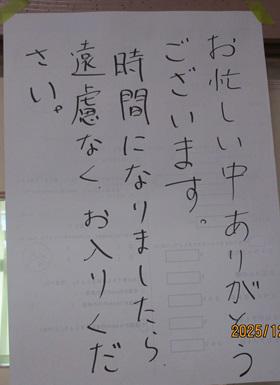 お忙しい中ありがとう
ございます。
時間になりましたら
遠慮なくお入りくだ
さい。
2025/12